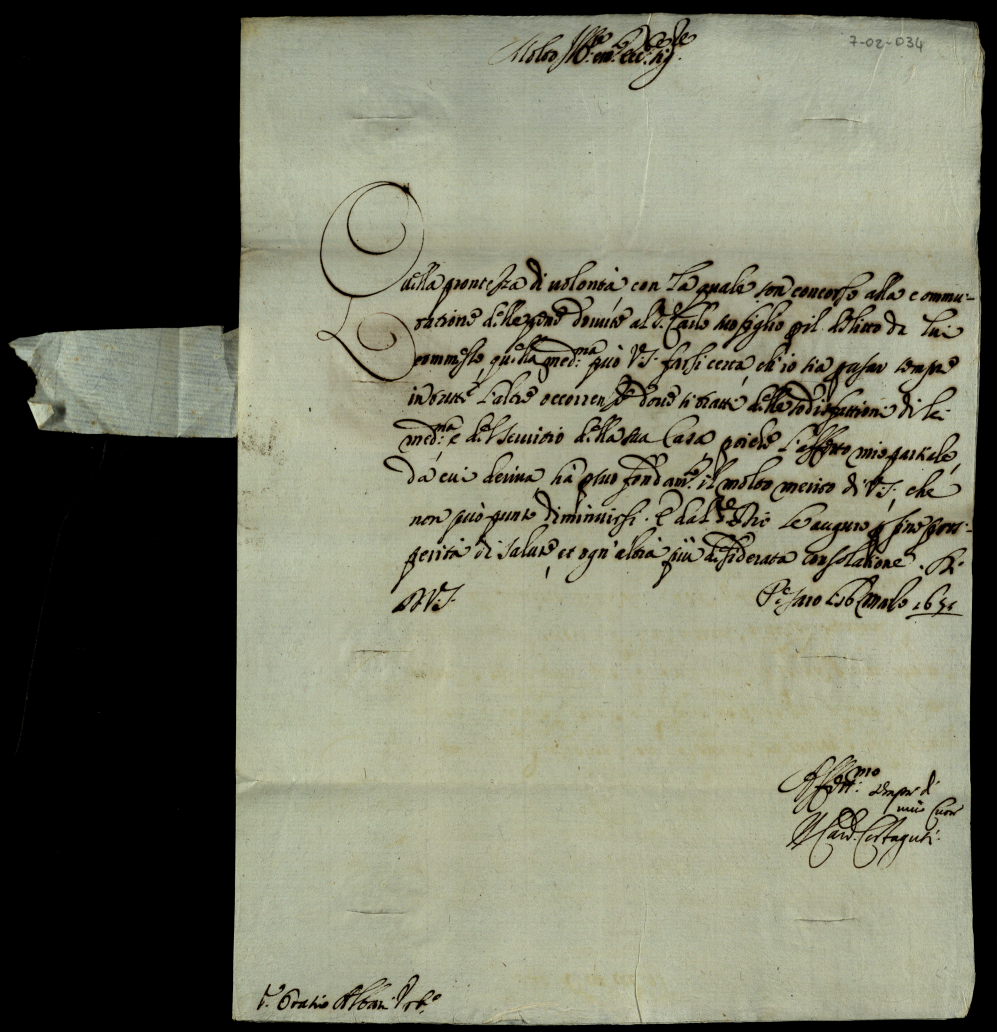 7-02-034
Molto Ill.re et m.to ecc.te Sig.re
Quella prontezza di volontà con la quale son concorso alla commu-
tatione delle pene dovute al S.r Carlo suo figlio pil delitto da lui
commesso, quella med.ma può V.S. farsi certa, ch'io sia p usar sempre
in tutte l'altre occorrenze dove si tratti della sodisfattione di lei
med.ma e del servitio della sua Casa, poiche l'affetto mio partiale,
da cui deriva hà p suo fondam.to il molto merito di V.S., che
non può punto diminuirsi. E dal S.re Dio le auguro p fine pros-
perità di salute, et ogn'altra più desiderata consolatione. Di
V.S. Pesaro li 16 Marzo 1651
Aff.mo sempre di
mio Cuore
Il Card. Costaguti
S.r Oratio Albani Urb.o